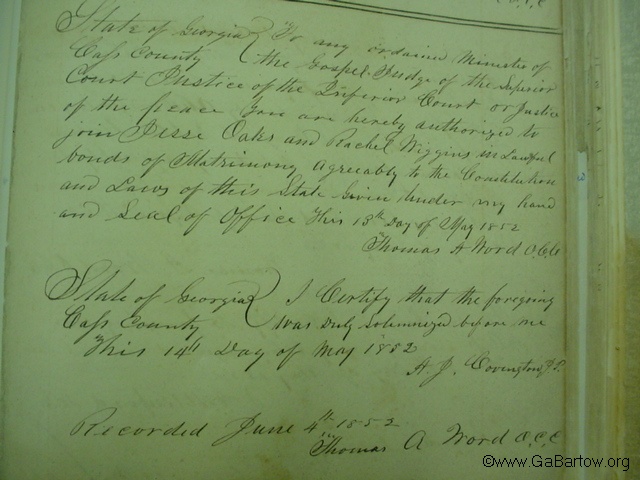 State of Georgia } To any ordained Minister of
Cass County } the Gospel Judge of the Superior
Court Justice of the Inferior Court or Justice
of the peace You are hereby authorized to
join Jesse Oaks and Rachel Wiggins in Lawful
bonds of Matrimony Agreeably to the Constitution
and Laws of this State Given under my hand
and Seal of Office This 13th Day of May 1852
Thomas A Word C.C.O.
State of Georgia } I Certify that the foregoing
Cass County } was duly solemnized before me
This 14th Day of May 1852
A. J. Covington J.P.
Recorded June 4th 1852
Thomas A Word O.C.C
3
©www.GaBartow.org